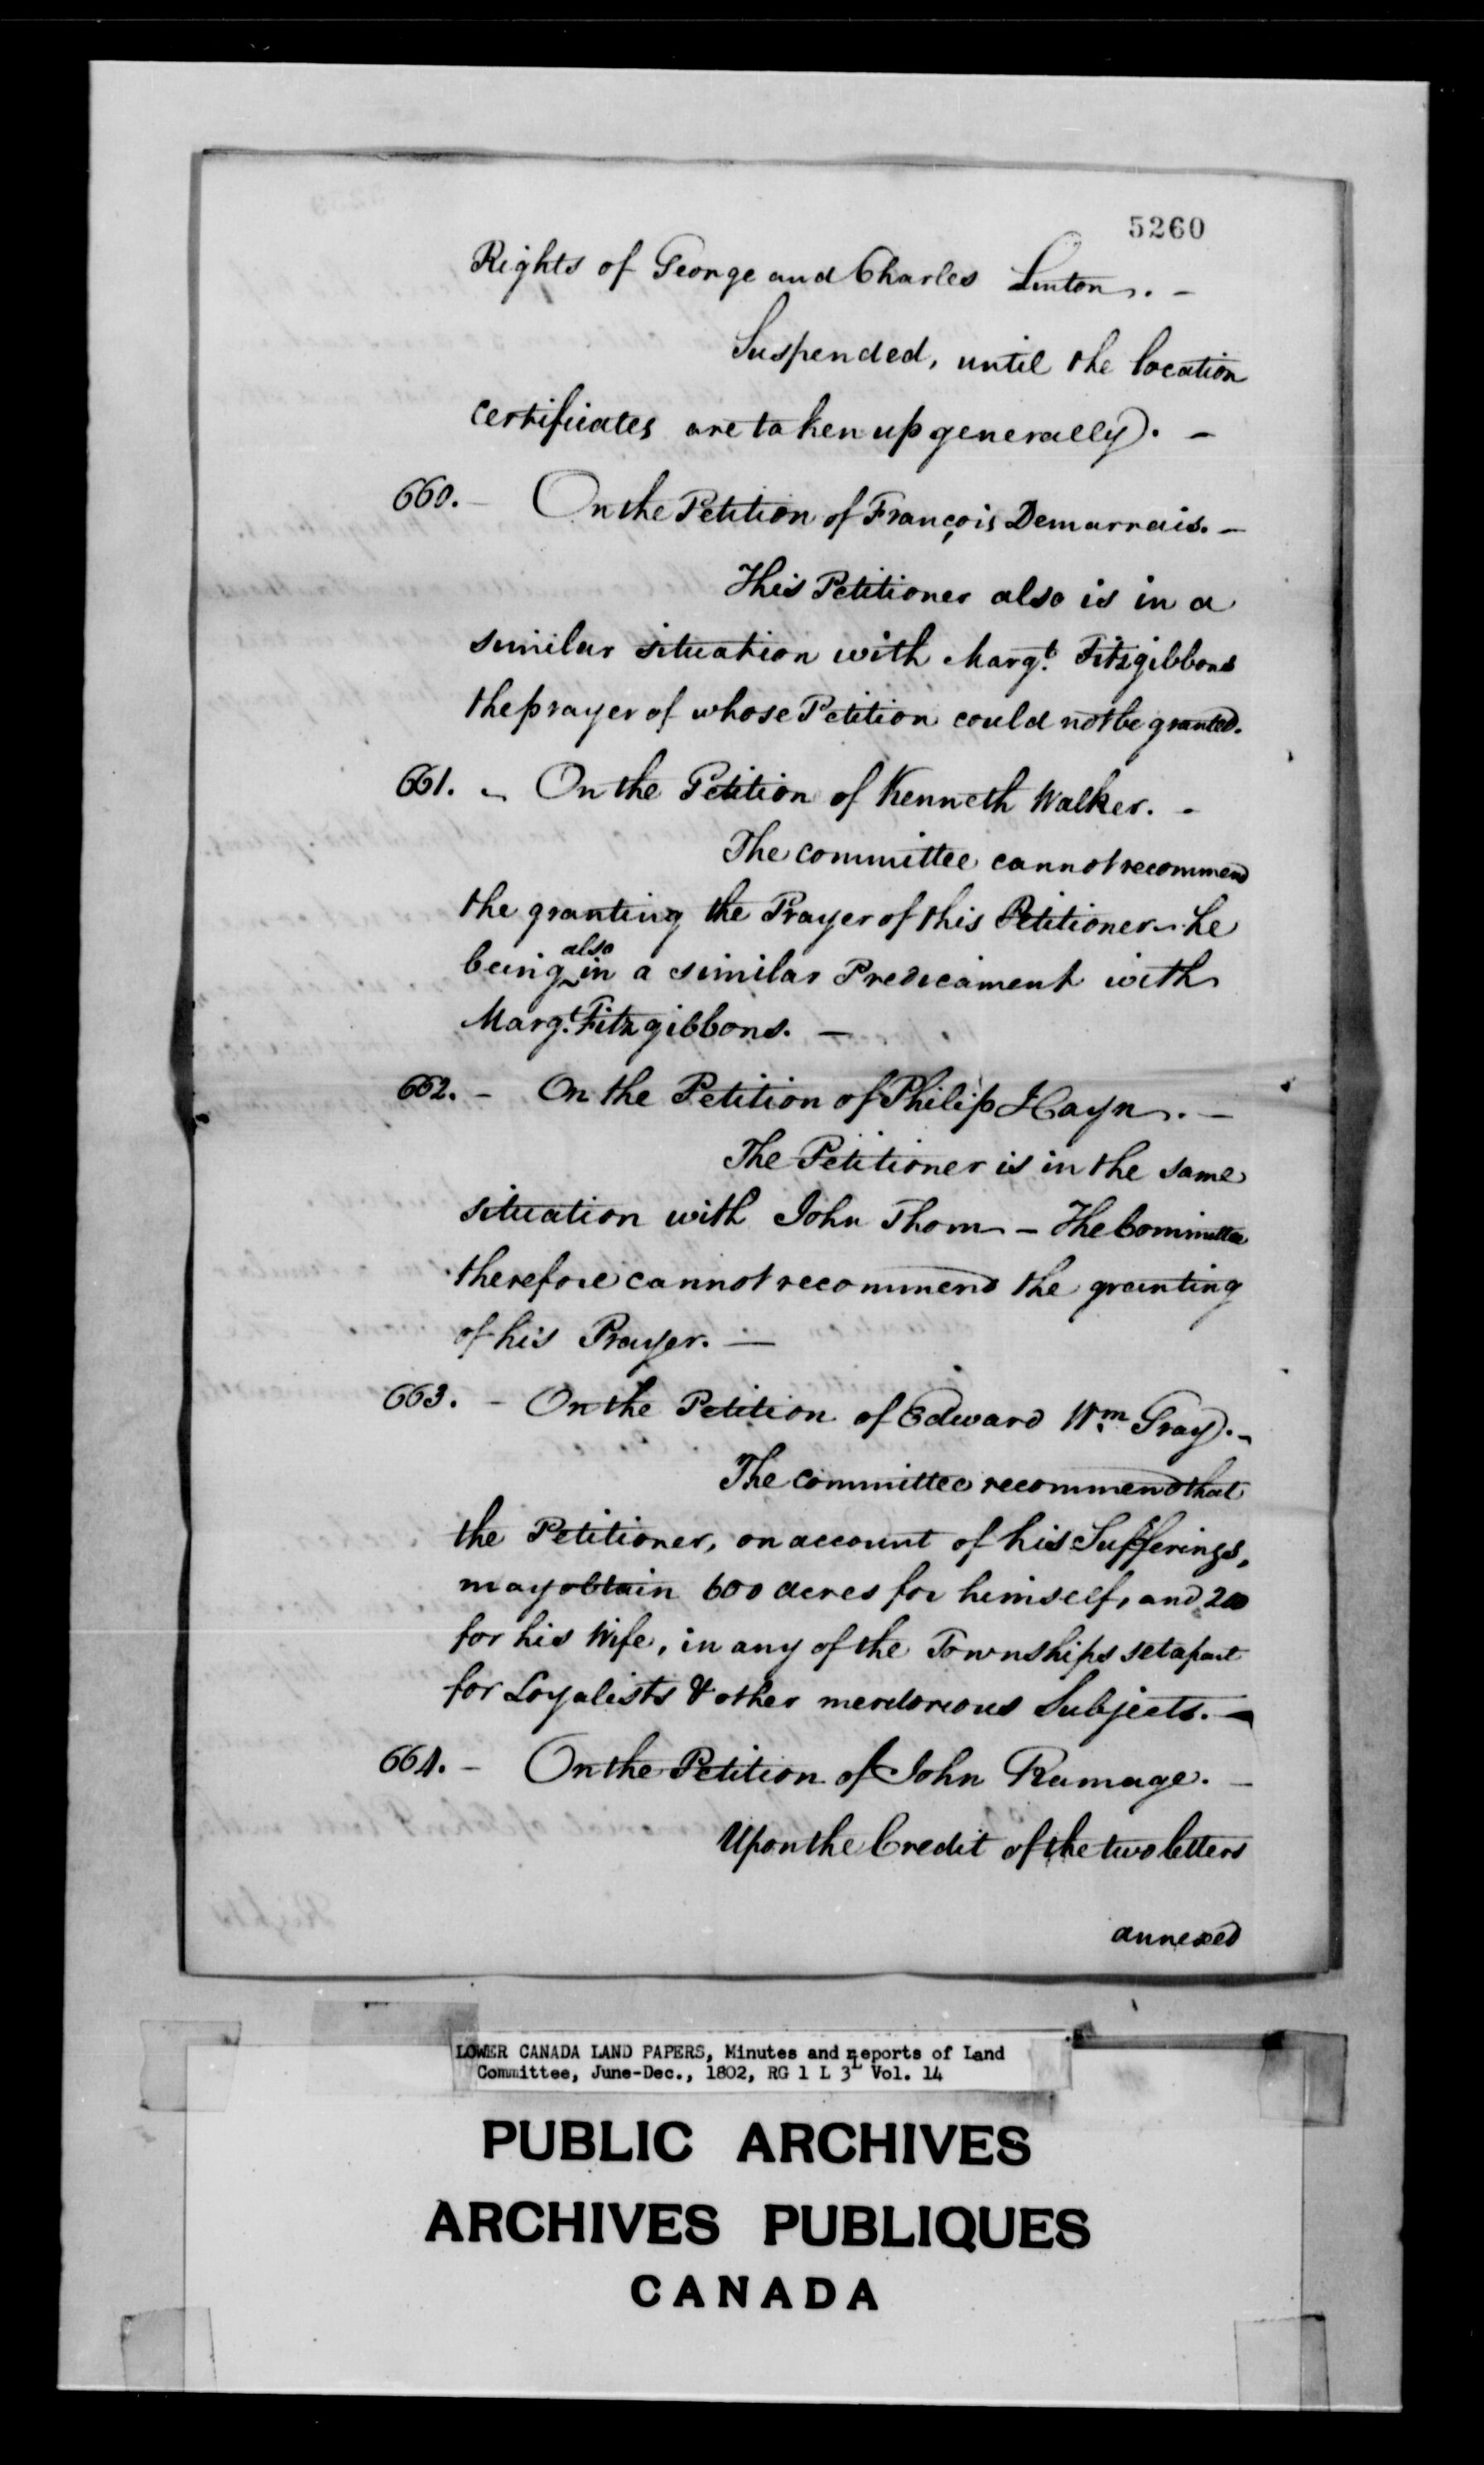 5260
Rights of George and Charles Linton. -
Suspended, until the location
certificates are taken up generally. -
660. - On the Petition of François Demarrais. -
This Petitioner also is in a
similar situation with Margt. Fitzgibbons
the prayer of whose Petition could not be granted.
661. - On the Petition of Kenneth Walker. -
The committee cannot recommend
the granting the Prayer of this Petitioner - he
being also in a similar Predicament with
Margt. Fitzgibbons. -
662. - On the Petition of Philip Hayn. -
The Petitioner is in the same
situation with John Thom - The Committee
therefore cannot recommend the granting
of his Prayer. -
663. - On the Petition of Edward Wm. Gray. -
The committee recommend that
the Petitioner, on account of his Sufferings,
may obtain 600 acres for himself, and 200
for his Wife, in any of the Townships set apart
for Loyalists & other meritorious Subjects. -
664. - On the Petition of John Ramage. -
Upon the Credit of the two letters
annexed
LOWER CANADA LAND PAPERS, Minutes and Reports of Land
Committee, June-Dec., 1802, RG 1 L 3L Vol. 14
PUBLIC ARCHIVES
ARCHIVES PUBLIQUES
CANADA